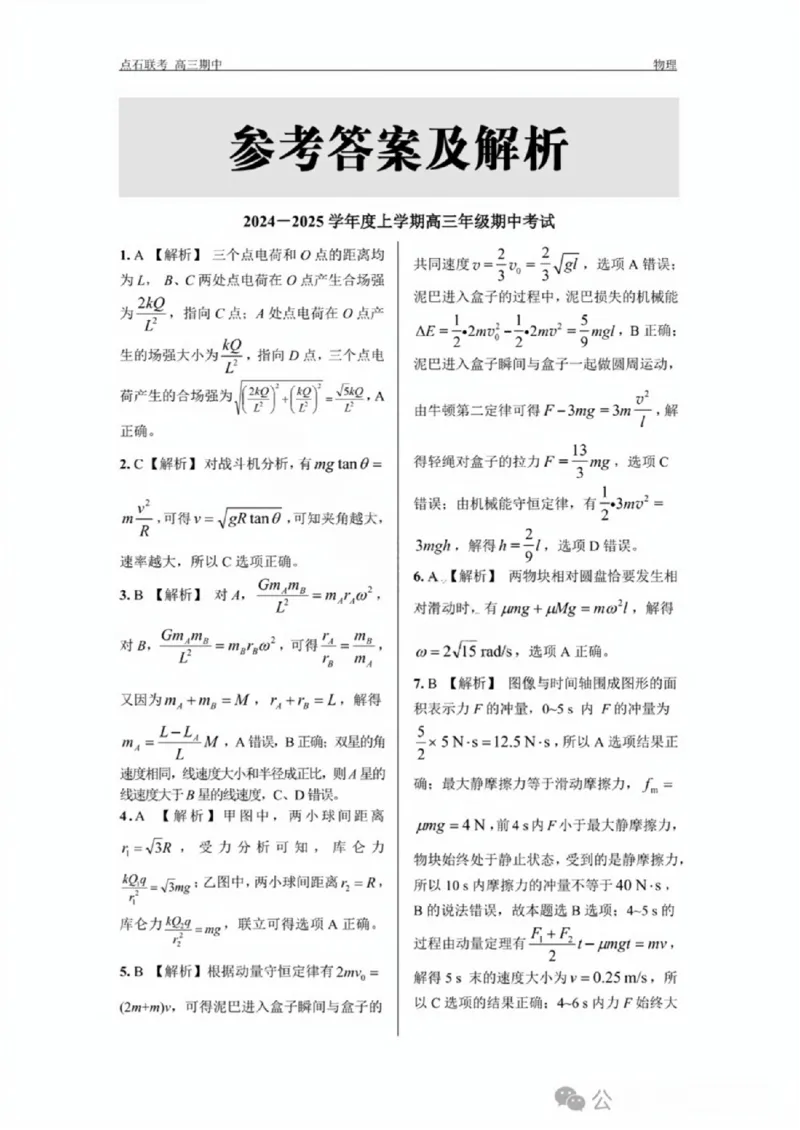 点石联考 高三期中 物理
参考答案及解析
2024—2025 学年度上学期高三年级期中考试
1. A 【解析】 三个点电荷和 O 点的距离均
为 L， B、C 两处点电荷在 O 点产生合场强
为 2kQ/L²，指向 C 点；A 处点电荷在 O 点产
生的场强大小为 kQ/L²，指向 D 点，三个点电
荷产生的合场强为 √((2kQ/L²)²+(kQ/L²)²) = √5kQ/L²，A
正确。
2. C【解析】 对战斗机分析，有 mg tan θ =
m v²/R，可得 v = √(gR tan θ)，可知夹角越大，
速率越大，所以 C 选项正确。
3. B 【解析】 对 A，Gm_Am_B/L² = m_Ar_Aω²，
对 B，Gm_Am_B/L² = m_Br_Bω²，可得 r_A/r_B = m_B/m_A，
又因为 m_A + m_B = M，r_A + r_B = L，解得
m_A = (L−L_A)/L M，A 错误，B 正确；双星的角
速度相同，线速度大小和半径成正比，则 A 星的
线速度大于 B 星的线速度，C、D 错误。
4. A 【解析】甲图中，两小球间距离
r₁ = √3R ，受力分析可知，库仑力
kQ₁q/r₁² = √3mg；乙图中，两小球间距离 r₂ = R，
库仑力 kQ₂q/r₂² = mg，联立可得选项 A 正确。
5. B 【解析】根据动量守恒定律有 2mv₀ =
(2m+m)v，可得泥巴进入盒子瞬间与盒子的
共同速度 v = 2/3 v₀ = 2/3 √gl，选项 A 错误；
泥巴进入盒子的过程中，泥巴损失的机械能
ΔE = 1/2•2mv₀² - 1/2•2mv² = 5/9 mgl，B 正确；
泥巴进入盒子瞬间与盒子一起做圆周运动，
由牛顿第二定律可得 F − 3mg = 3m v²/l，解
得轻绳对盒子的拉力 F = 13/3 mg，选项 C
错误；由机械能守恒定律，有 1/2•3mv² =
3mgh，解得 h = 2/9 l，选项 D 错误。
6. A 【解析】 两物块相对圆盘恰要发生相
对滑动时，有 μmg + μMg = mω²l，解得
ω = 2√15 rad/s，选项 A 正确。
7. B 【解析】 图像与时间轴围成图形的面
积表示力 F 的冲量，0~5 s 内 F 的冲量为
5/2 × 5 N·s = 12.5 N·s，所以 A 选项结果正
确；最大静摩擦力等于滑动摩擦力，f_m =
μmg = 4 N，前 4 s 内 F 小于最大静摩擦力，
物块始终处于静止状态，受到的是静摩擦力，
所以 10 s 内摩擦力的冲量不等于 40 N·s，
B 的说法错误，故本题选 B 选项；4~5 s 的
过程由动量定理有 (F₁+F₂)/2 t − μmgt = mv，
解得 5 s 末的速度大小为 v = 0.25 m/s，所
以 C 选项的结果正确；4~6 s 内力 F 始终大
公